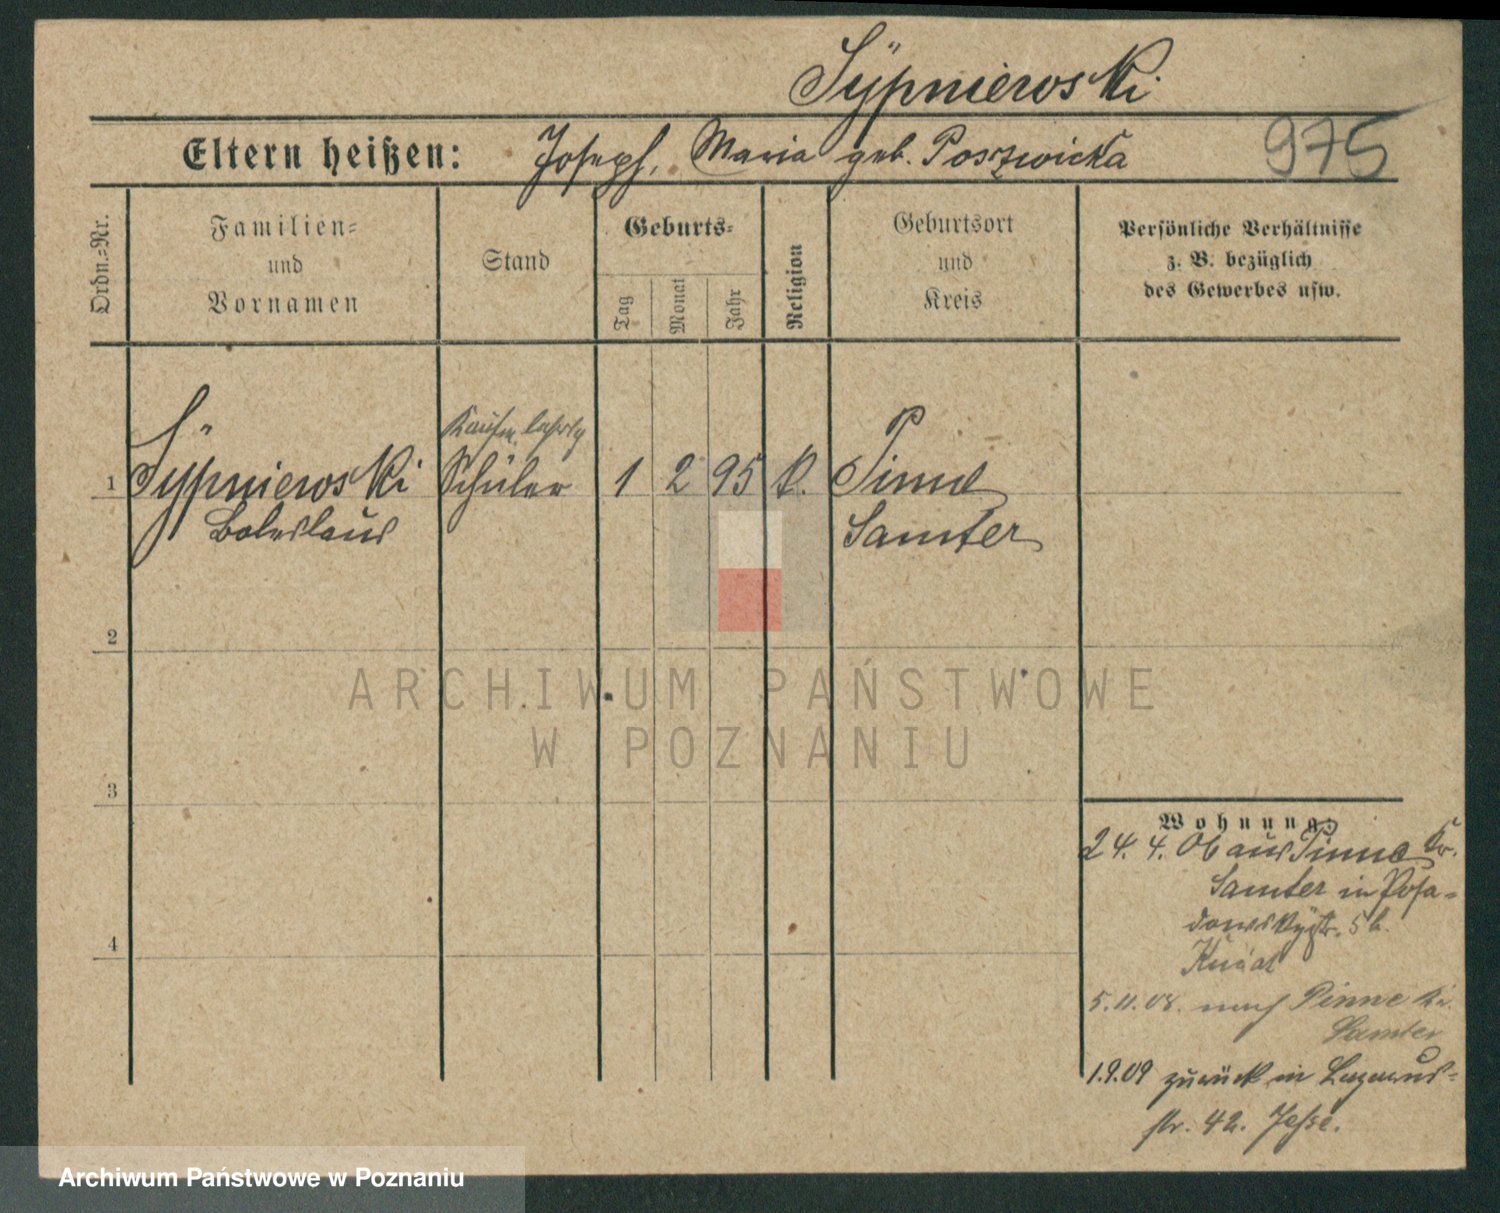 Sÿpniewski
Eltern heißen: Joseph, Maria geb. Poszwicka 975
Ordn.-Nr.
Familien-
und
Vornamen
Stand
Geburts-
Tag
Monat
Jahr
Religion
Geburtsort
und
Kreis
Persönliche Verhältnisse
z. B. bezüglich
des Gewerbes usw.
Kaufm. lehrlg
1 Sÿpniewski Schüler 1 2 95 k. Pinne
Boleslaus Samter
2
ARCHIWUM PAŃSTWOWE
W POZNANIU
3
Wohnung:
24. 4. 06 aus Pinne Kr.
Samter in Posa-
dowskystr. 5 b.
4
5.11.08. nach Pinne Kr.
Samter
1.9.09 zurück in Lazarus-
str. 42. Jesse.
Archiwum Państwowe w Poznaniu